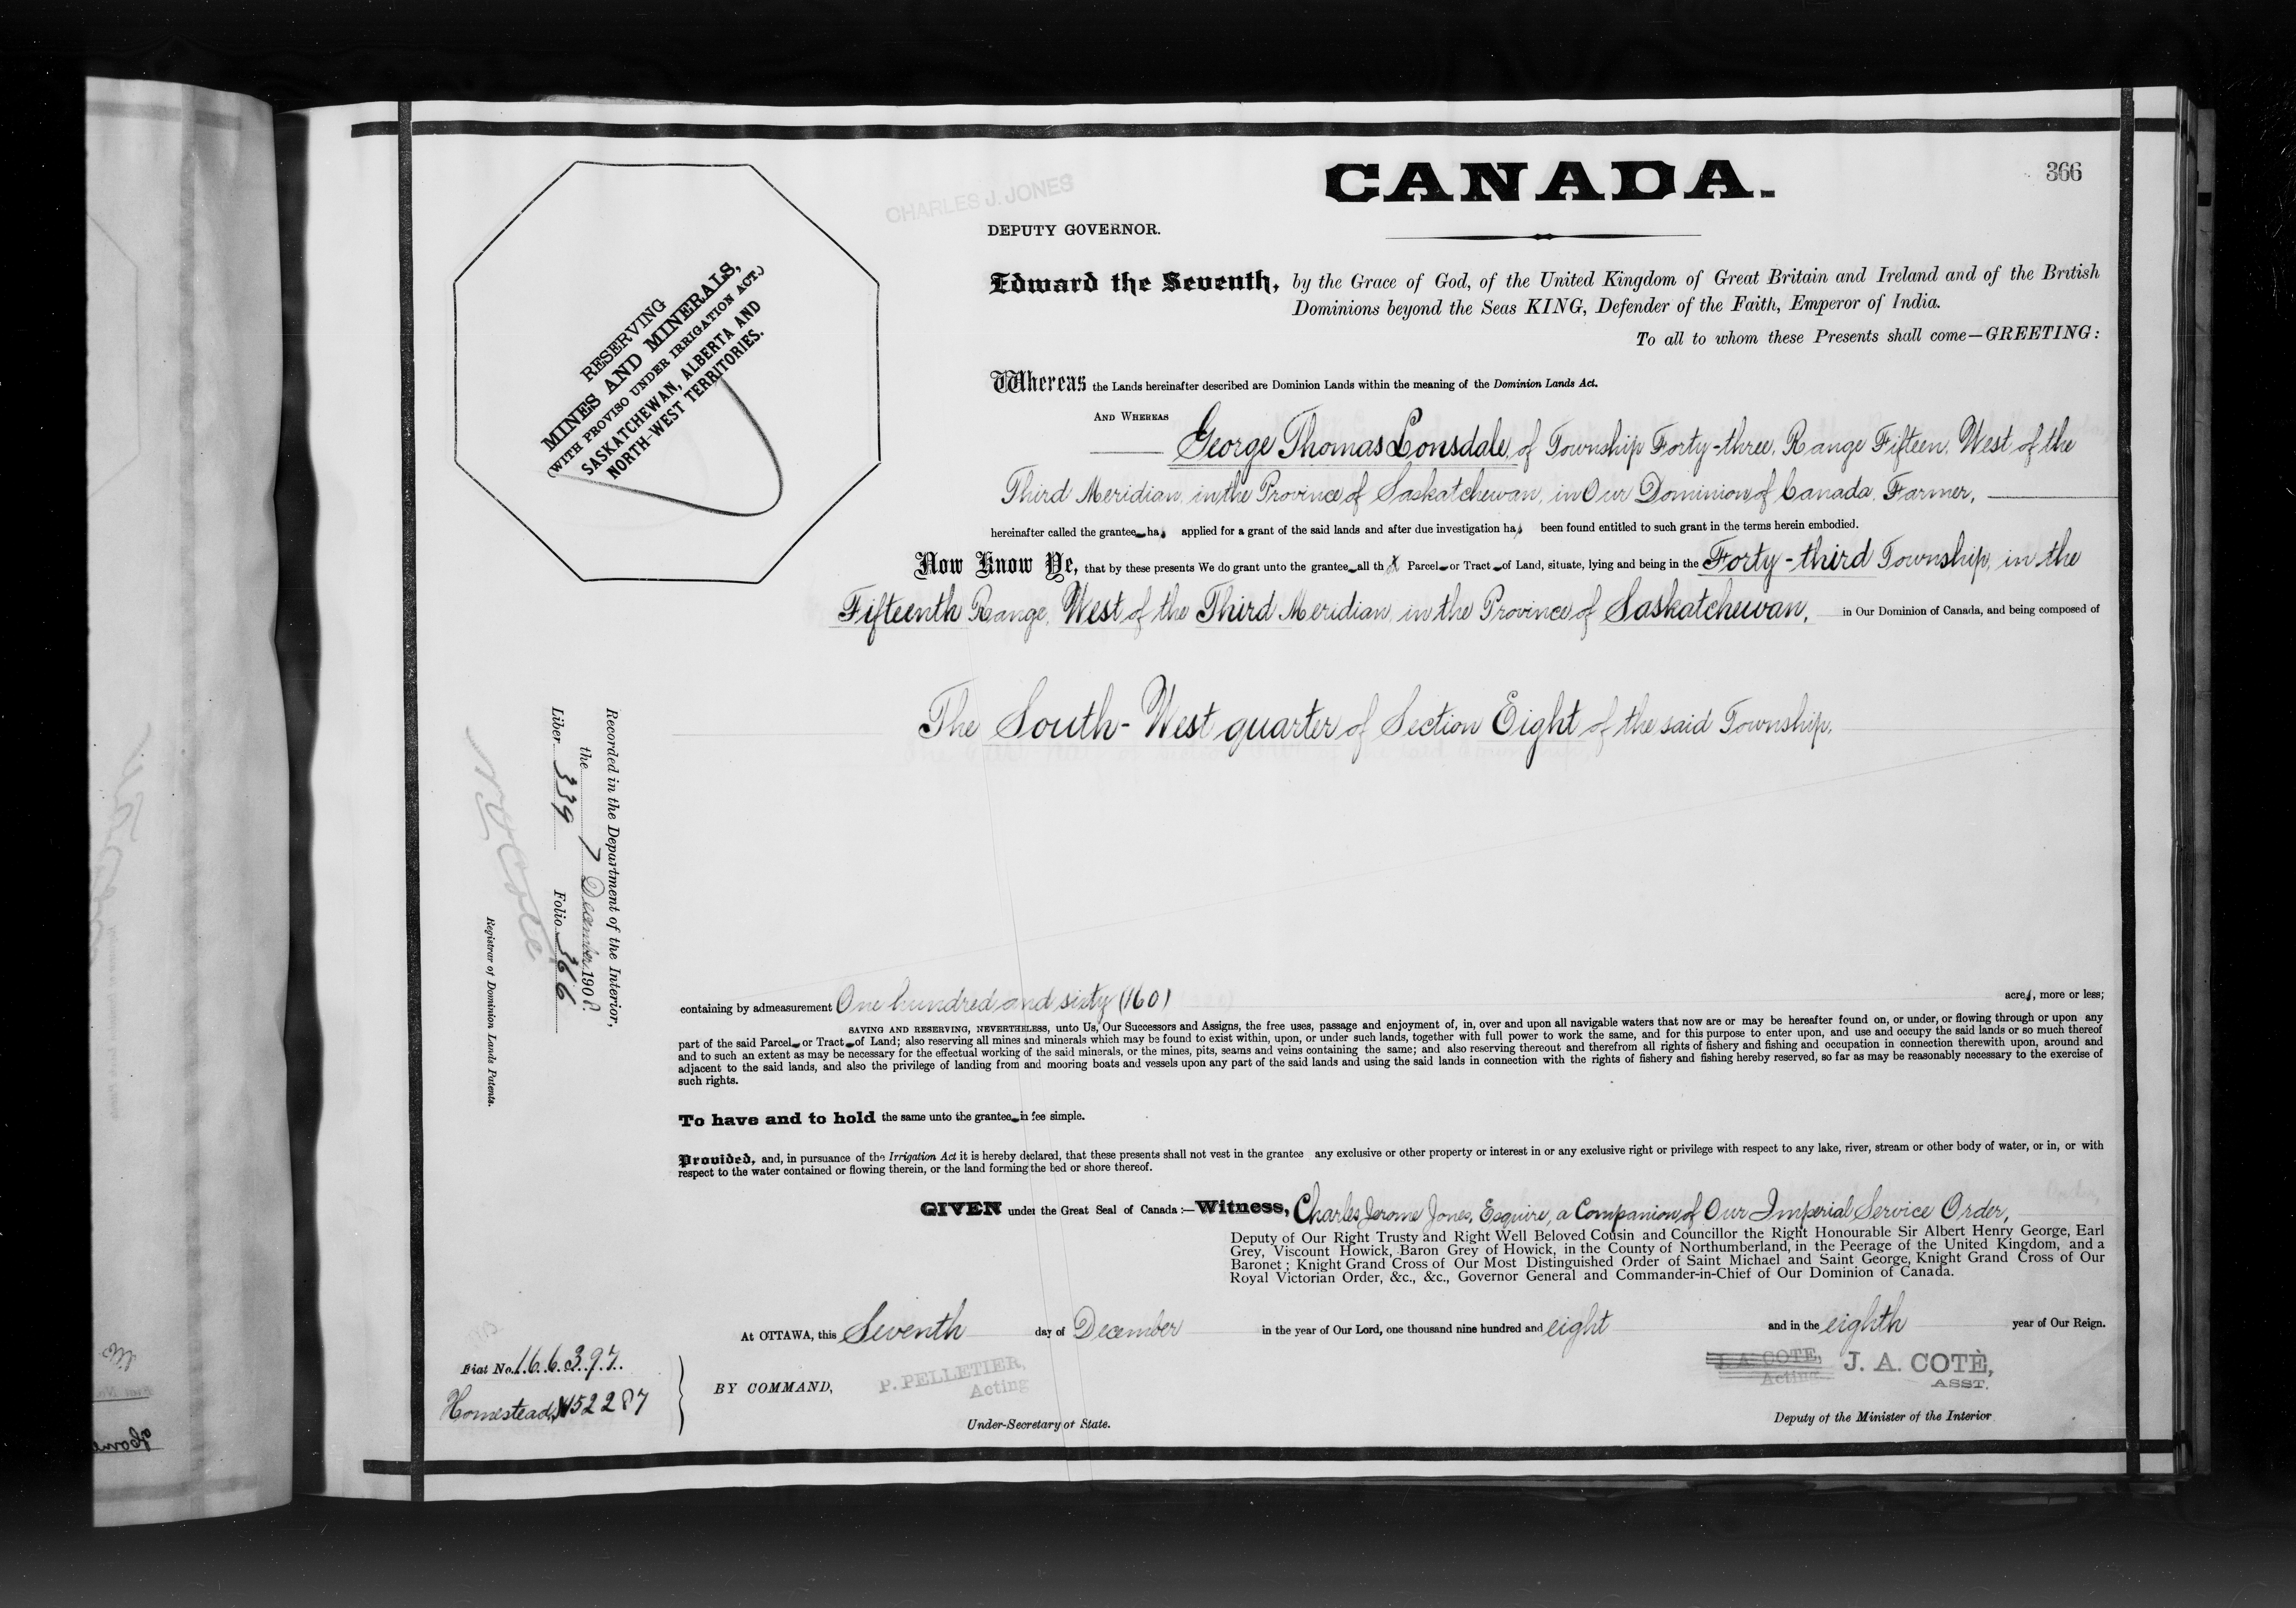 CANADA.
366
CHARLES J. JONES
DEPUTY GOVERNOR.
RESERVING
MINES AND MINERALS,
(WITH PROVISO UNDER IRRIGATION ACT.)
SASKATCHEWAN, ALBERTA AND
NORTH-WEST TERRITORIES.
Edward the Seventh, by the Grace of God, of the United Kingdom of Great Britain and Ireland and of the British
Dominions beyond the Seas KING, Defender of the Faith, Emperor of India.
To all to whom these Presents shall come—GREETING:
Whereas the Lands hereinafter described are Dominion Lands within the meaning of the Dominion Lands Act.
AND WHEREAS
George Thomas Lonsdale, of Township Forty-three, Range Fifteen, West of the
Third Meridian, in the Province of Saskatchewan, in Our Dominion of Canada, Farmer,
hereinafter called the grantee has applied for a grant of the said lands and after due investigation has been found entitled to such grant in the terms herein embodied.
Now Know Ye, that by these presents We do grant unto the grantee all th Parcel or Tract of Land, situate, lying and being in the Forty-third Township, in the
Fifteenth Range, West of the Third Meridian, in the Province of Saskatchewan, in Our Dominion of Canada, and being composed of
The South-West quarter of Section Eight of the said Township.
Recorded in the Department of the Interior,
the 7 December 1908.
Liber 339 Folio 366
Registrar of Dominion Lands Patents.
containing by admeasurement One hundred and sixty (160) acres, more or less;
SAVING AND RESERVING, NEVERTHELESS, unto Us, Our Successors and Assigns, the free uses, passage and enjoyment of, in, over and upon all navigable waters that now are or may be hereafter found on, or under, or flowing through or upon any
part of the said Parcel or Tract of Land; also reserving all mines and minerals which may be found to exist within, upon, or under such lands, together with full power to work the same, and for this purpose to enter upon, and use and occupy the said lands or so much thereof
and to such an extent as may be necessary for the effectual working of the said minerals, or the mines, pits, seams and veins containing the same; and also reserving thereout and therefrom all rights of fishery and fishing and occupation in connection therewith upon, around and
adjacent to the said lands, and also the privilege of landing from and mooring boats and vessels upon any part of the said lands and using the said lands in connection with the rights of fishery and fishing hereby reserved, so far as may be reasonably necessary to the exercise of
such rights.
To have and to hold the same unto the grantee in fee simple.
Provided, and, in pursuance of the Irrigation Act it is hereby declared, that these presents shall not vest in the grantee any exclusive or other property or interest in or any exclusive right or privilege with respect to any lake, river, stream or other body of water, or in, or with
respect to the water contained or flowing therein, or the land forming the bed or shore thereof.
GIVEN under the Great Seal of Canada:—Witness, Charles Jerome Jones, Esquire, a Companion of Our Imperial Service Order,
Deputy of Our Right Trusty and Right Well Beloved Cousin and Councillor the Right Honourable Sir Albert Henry George, Earl
Grey, Viscount Howick, Baron Grey of Howick, in the County of Northumberland, in the Peerage of the United Kingdom, and a
Baronet; Knight Grand Cross of Our Most Distinguished Order of Saint Michael and Saint George, Knight Grand Cross of Our
Royal Victorian Order, &c., &c., Governor General and Commander-in-Chief of Our Dominion of Canada.
At OTTAWA, this Seventh day of December in the year of Our Lord, one thousand nine hundred and eight and in the eighth year of Our Reign.
Fiat No. 166397.
Homestead, 1152287
BY COMMAND,
P. PELLETIER,
Acting
Under-Secretary of State.
J. A. COTE,
Acting
J. A. COTÈ,
ASST.
Deputy of the Minister of the Interior